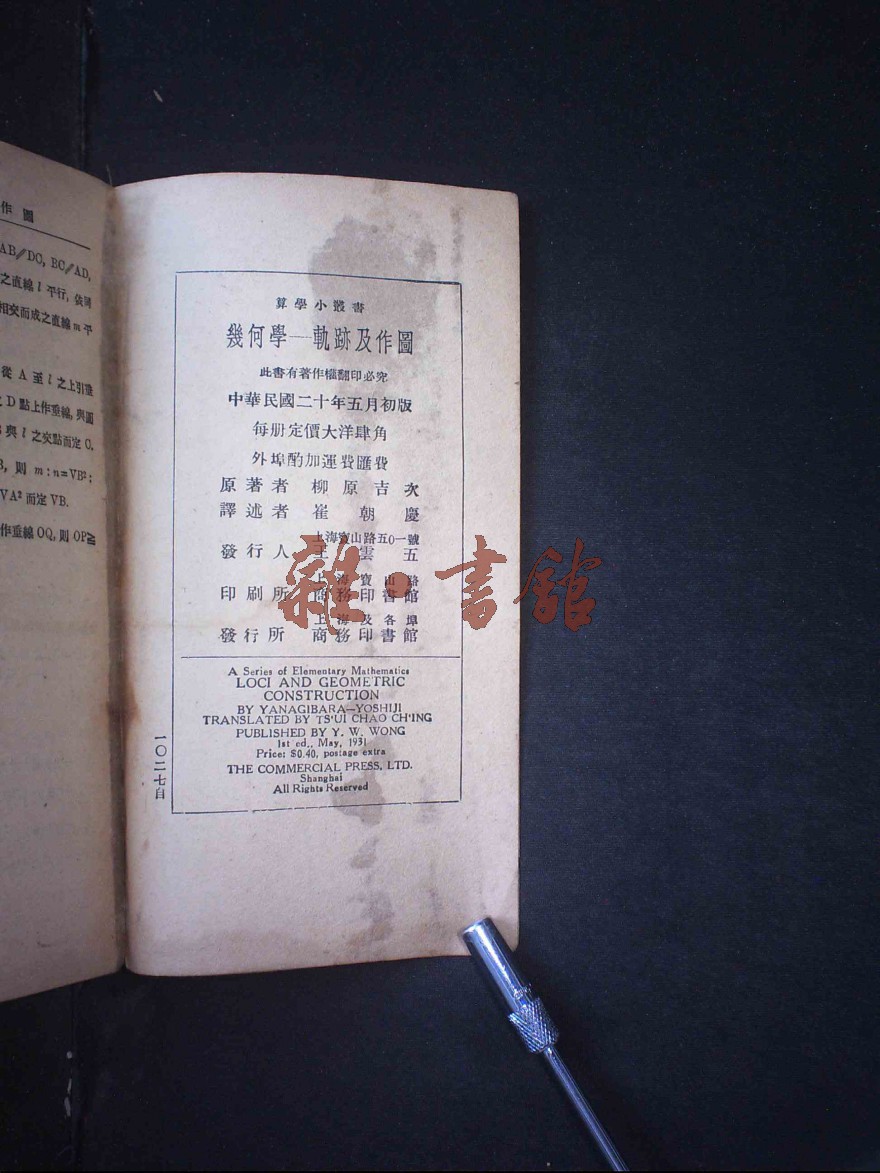 作圖
AB∥DC, BC∥AD,
之直線 l 平行, 依同
相交而成之直線 m 平
從 A 至 l 之上引垂
D 點上作垂線, 與圓
與 l 之交點而定 C.
則 m : n=VB²;
VA² 而定 VB.
作垂線 OQ, 則 OP≧
算學小叢書
幾何學—軌跡及作圖
此書有著作權翻印必究
中華民國二十年五月初版
每册定價大洋肆角
外埠酌加運費匯費
原著者 柳原吉次
譯述者 崔朝慶
上海寶山路五〇一號
發行人 王雲五
上海寶山路
印刷所 商務印書館
上海及各埠
發行所 商務印書館
A Series of Elementary Mathematics
LOCI AND GEOMETRIC
CONSTRUCTION
BY YANAGIBARA—YOSHIJI
TRANSLATED BY TS'UI CHAO CH'ING
PUBLISHED BY Y. W. WONG
1st ed., May, 1931
Price: $0.40, postage extra
THE COMMERCIAL PRESS, LTD.
Shanghai
All Rights Reserved
一〇二七自
雜·書館